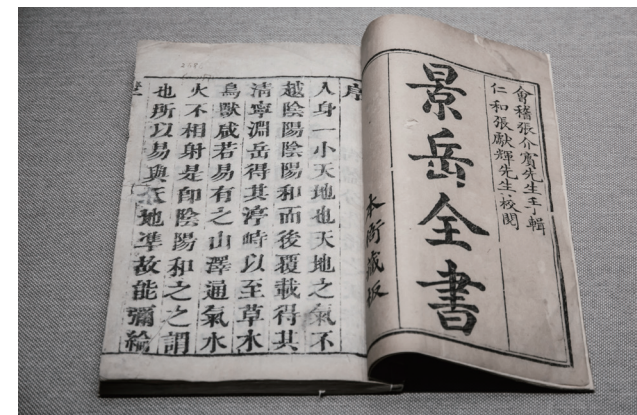 會稽張介賓先生手輯
仁和張獻輝先生校閱
景岳全書
本衙藏板
序
人身一小天地也天地之氣不
越陰陽陰陽和而後覆載得其
清寧淵岳得其渟峙以至草木
鳥獸咸若易有之山澤通氣水
火不相射是卽陰陽和之之謂
也所以易與天地準故能彌綸